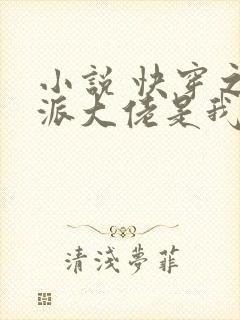 小說 快穿之
派大佬是我
清淺夢菲